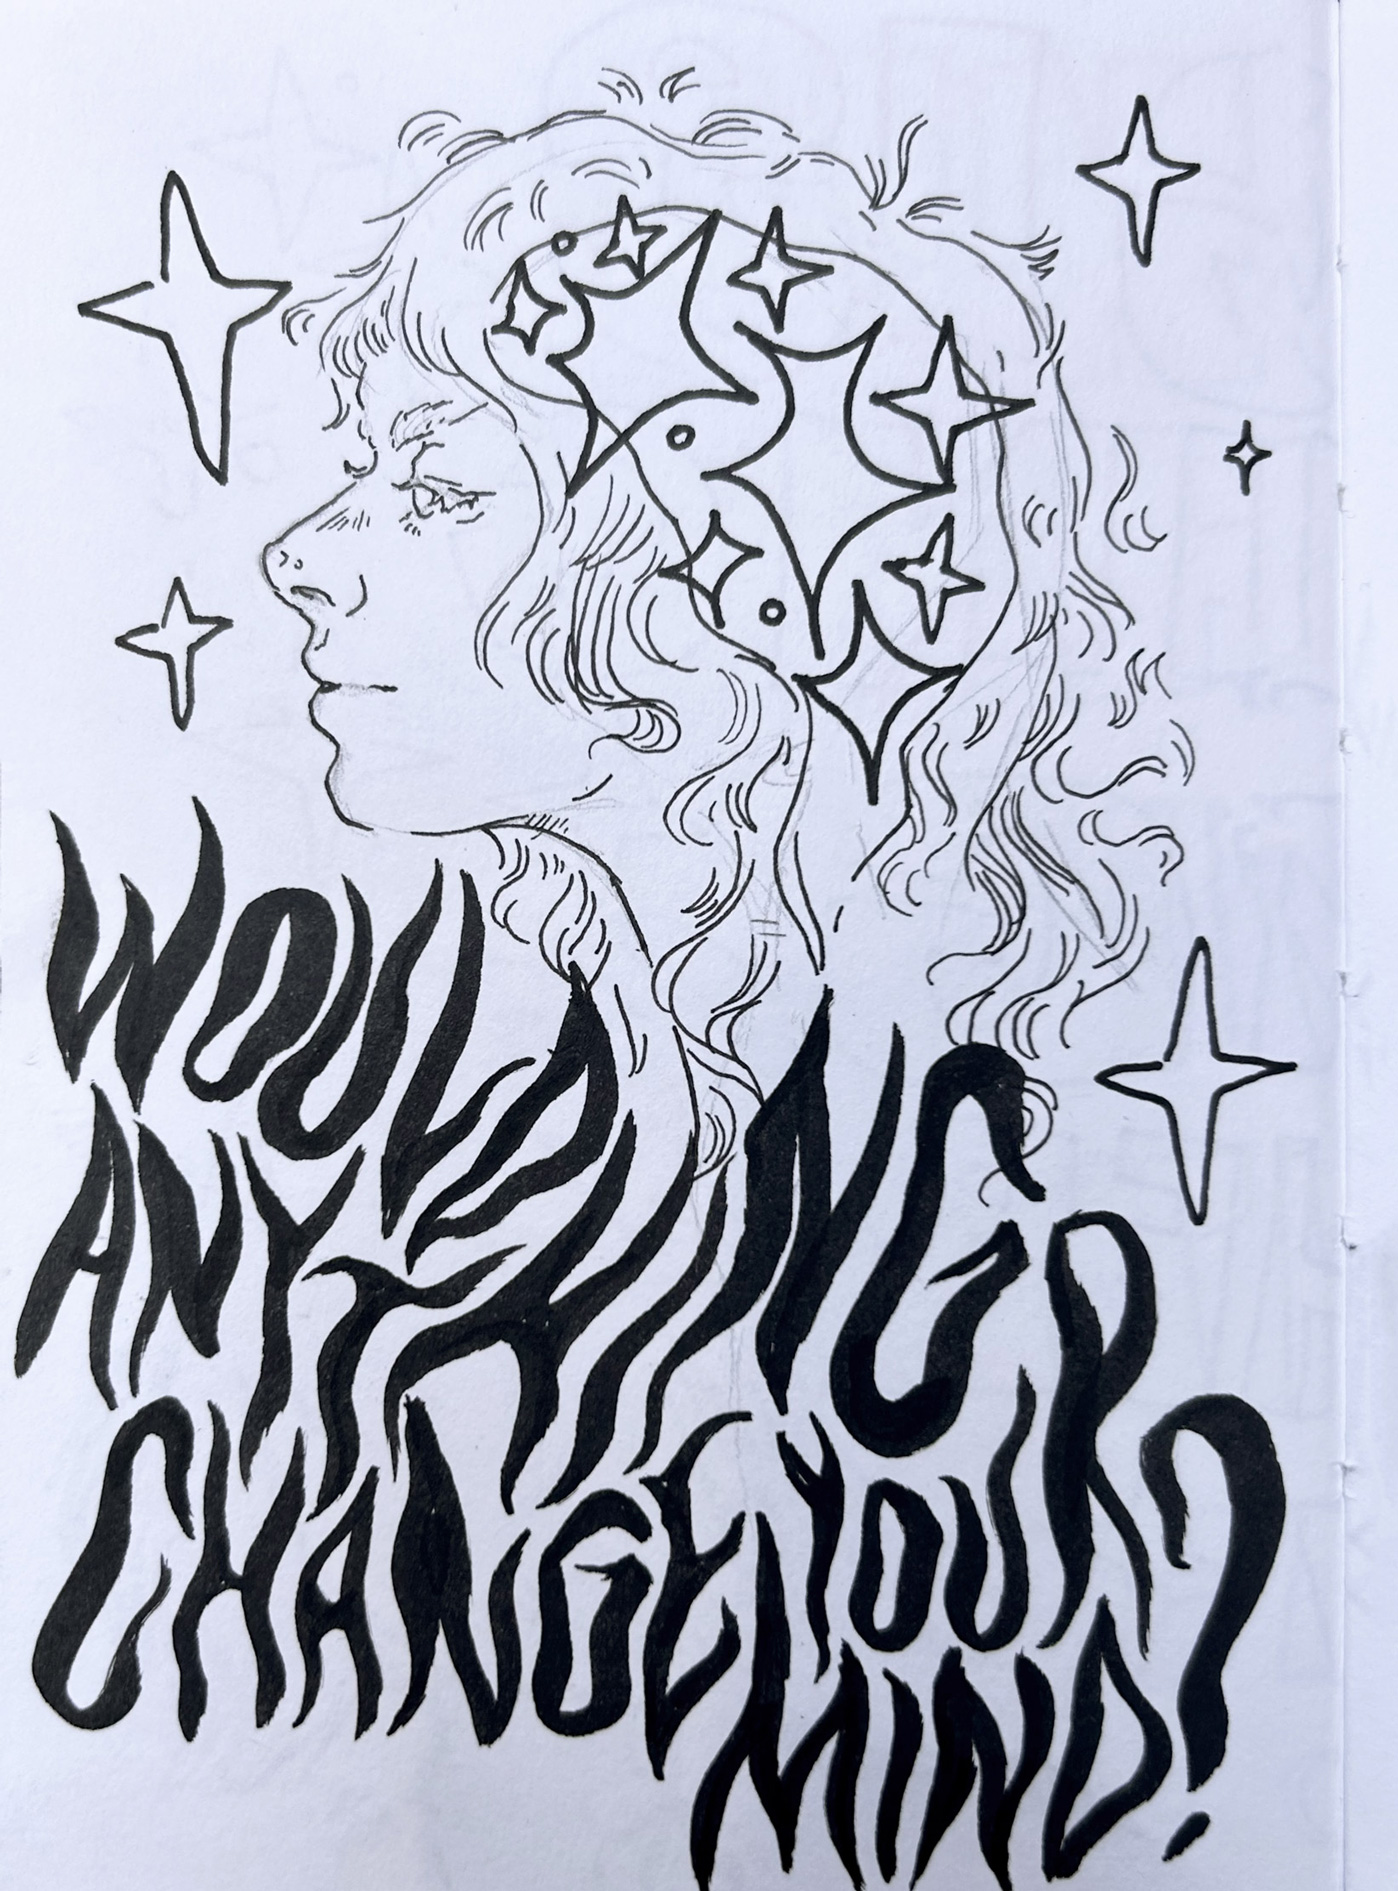 WOULD
ANYTHING
CHANGE YOUR
MIND?